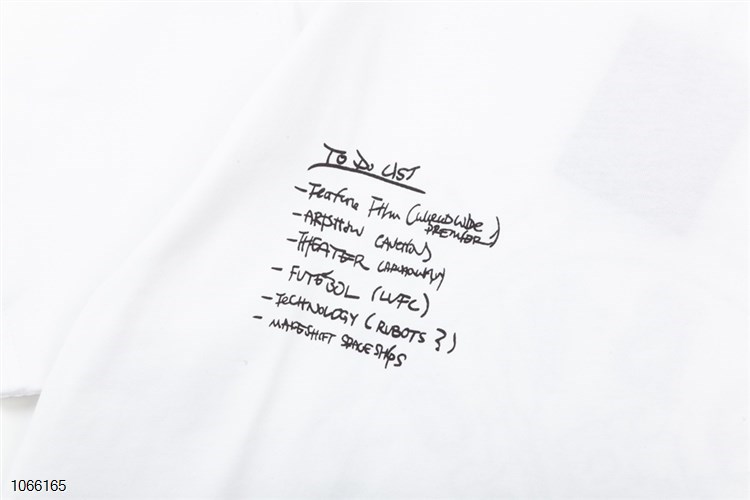 TO DO LIST
- Feature Film (WORLDWIDE
PREMIER)
- ARTSHOW (AUCTION)
- THEATER
- FUTEBOL (LVFC)
- TECHNOLOGY (ROBOTS?)
- MAKESHIFT SPACESHIPS
1066165